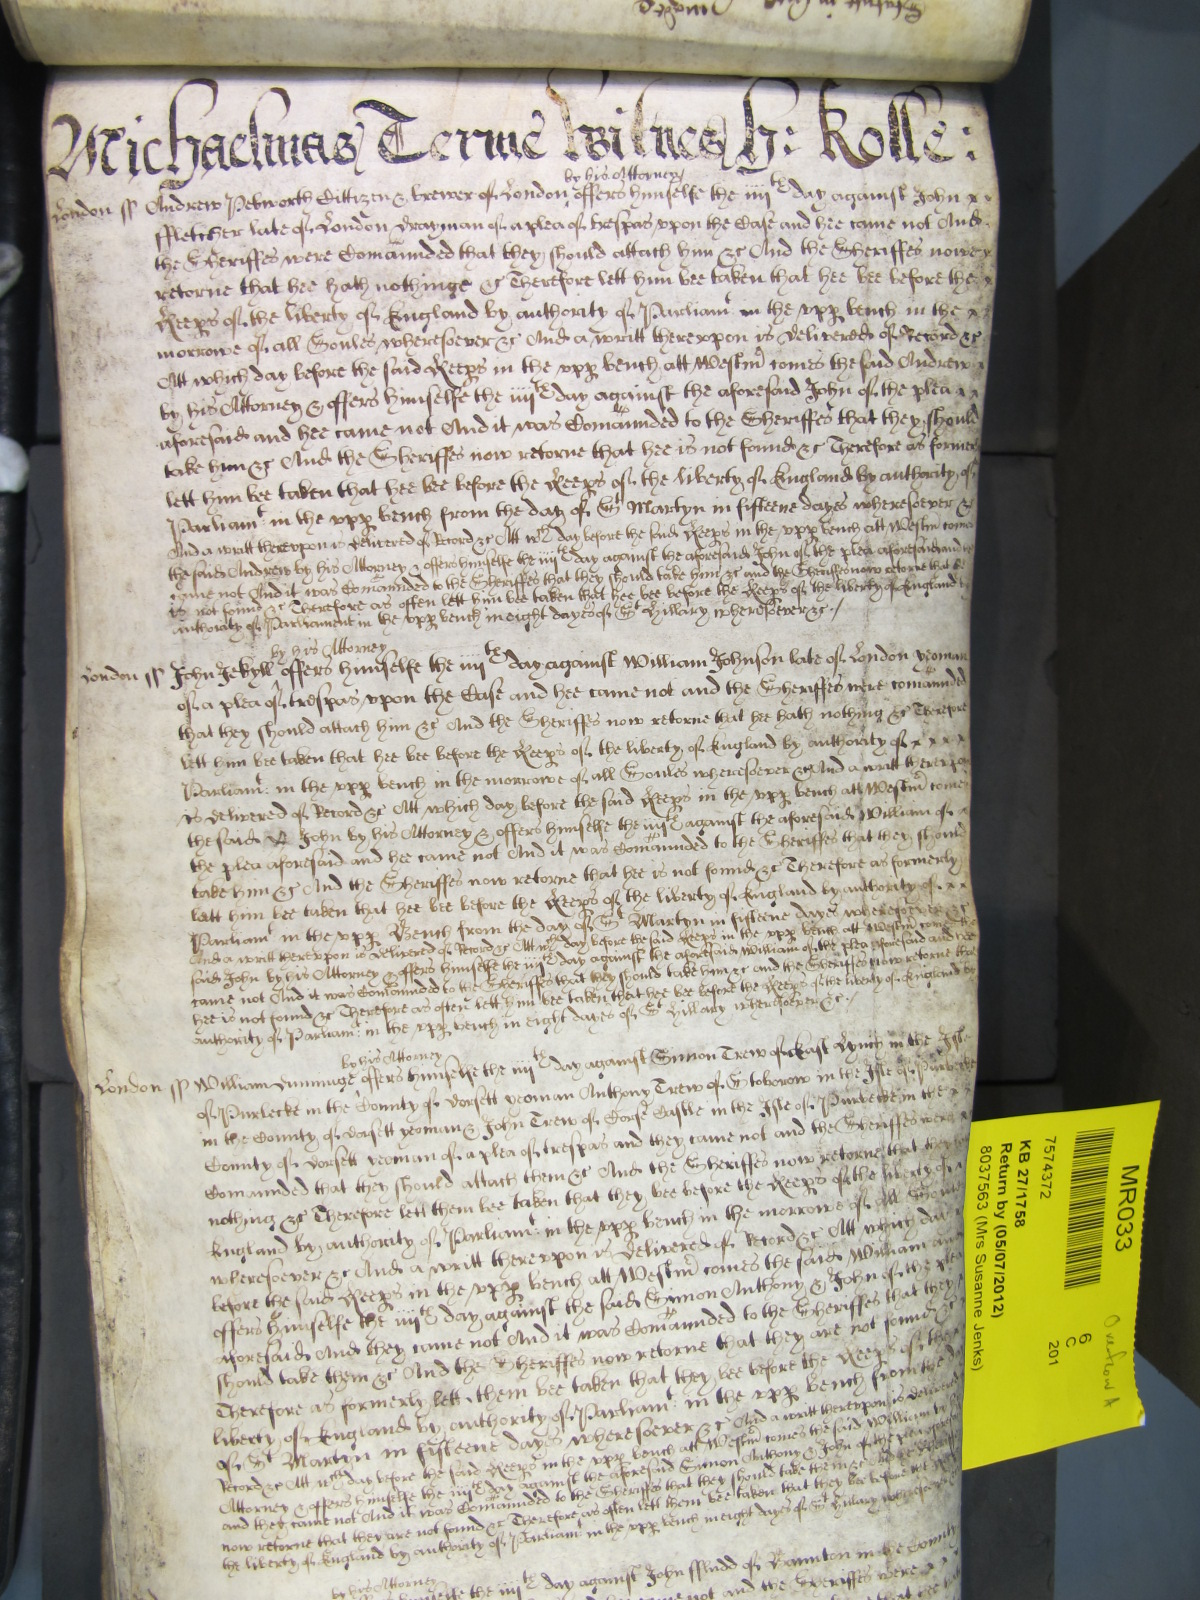 Michaelmas Terme Witnes H: Rolle:
by his Attorney
London ss Andrew Petworth Cittizen & brewer of London offers himselfe the iiijth day against John x x
ffletcher late of London Drayman of a plea of trespas upon the Case and hee came not And
the Sheriffes were Comaunded that they should attach him &c And the Sheriffes nowe
retorne that hee hath nothinge &c Therefore lett him bee taken that hee bee before the
Keeps of the liberty of England by authority of Parliamt in the upp bench in the x x
morrowe of all Soules wheresoever &c And a writt thereupon is delivered of Record &c
Att which day before the said Keeps in the upp bench att Westm comes the said Andrew
by his Attorney & offers himselfe the iiijth day against the aforesaid John of the plea x x
aforesaid and hee came not And it was Comaunded to the Sheriffes that they should
take him &c And the Sheriffes now retorne that hee is not found &c Therefore as former
lett him bee taken that hee bee before the Keeps of the liberty of England by authority of
Parliamt in the upp bench from the day of St Martyn in fifteene dayes wheresoever &c
And a writt thereupon is delivered of Record &c Att wch day before the said Keeps in the upp bench att Westm comes
the said Andrew by his Attorney & offers himselfe the iiijth day against the aforesaid John of the plea aforesaid and hee
came not And it was Comaunded to the Sheriffes that they should take him &c and the Sheriffes now retorne that hee
is not found &c Therefore as often lett him bee taken that hee bee before the Keeps of the liberty of England by
authority of Parliament in the upp bench in eight dayes of St Hillary wheresoever &c./
by his Attorney
London ss John Jekyll offers himselfe the iiijth day against William Johnson late of London yeoman
of a plea of trespas upon the Case and hee came not and the Sheriffes were comaunded
that they should attach him &c And the Sheriffes now retorne that hee hath nothing &c Therefore
lett him bee taken that hee bee before the Keeps of the liberty of England by authority of x x x x
Parliamt: in the upp bench in the morrowe of all Soules wheresoever &c And a writt thereupon
is delivered of Record &c Att which day before the said Keeps in the upp bench att Westm comes
the said John by his Attorney & offers himselfe the iiijth against the aforesaid William of x
the plea aforesaid and hee came not And it was Comaunded to the Sheriffes that they should
take him &c And the Sheriffes now retorne that hee is not found &c Therefore as formerly
lett him bee taken that hee bee before the Keeps of the liberty of England by authority of x x
Parliamt in the upp Bench from the day of St Martyn in fifteene dayes wheresoever &c
And a writt thereupon is delivered of Record &c Att wch day before the said Keeps in the upp bench att Westm comes the
said John by his Attorney & offers himselfe the iiijth day against the aforesaid William of the plea aforesaid and hee
came not And it was Comaunded to the Sheriffes that they should take him &c and the Sheriffes now retorne that
hee is not found &c Therefore as often lett him bee taken that hee bee before the Keeps of the liberty of England by
authority of Parliamt: in the upp bench in eight dayes of St Hillary wheresoever &c./
by his Attorney
London ss William Dummage offers himselfe the iiijth day against Simon Trew of East Lynch in the Isle
of Purbecke in the County of Dorsett yeoman Anthony Trew of Stoborow in the Isle of Purbecke
in the County of Dorsett yeoman & John Trew of Corfe Castle in the Isle of Purbecke in the x x
County of Dorsett yeoman of a plea of trespas and they came not and the Sheriffes were x
Comaunded that they should attach them &c And the Sheriffes now retorne that they
nothing &c Therefore lett them bee taken that they bee before the Keeps of the liberty of x
England by authority of Parliamt: in the upp bench in the morrowe of All Soules
wheresoever &c And a writt thereupon is delivered of Record &c Att which day
before the said Keeps in the upp bench att Westm comes the said William and
offers himselfe the iiijth day against the said Symon Anthony & John of the plea
aforesaid And they came not And it was Comaunded to the Sheriffes that they
should take them &c And the Sheriffes now retorne that they are not found &c
Therefore as formerly lett them bee taken that they bee before the Keeps of the
liberty of England by authority of Parliamt: in the upp bench from the day
of St Martyn in fifteene dayes wheresoever &c And a writt thereupon is delivered
Record &c Att wch day before the said Keeps in the upp bench att Westm comes the said William by
Attorney & offers himselfe the iiijth day against the aforesaid Simon Anthony & John of the plea
and they came not And it was Comaunded to the Sheriffes that they should take them &c
now retorne that they are not found &c Therefore as often lett them bee taken that they bee before the
the liberty of England by authority of Parliamt: in the upp bench in eight dayes of St Hillary wheresoever
by his Attorney
himselfe the iiijth day against John ffludd of Taunton in the County
not and the Sheriffes were x x
MR033
7574372
KB 27/1758
Return by (05/07/2012)
8037563 (Mrs Susanne Jenks)
6
C
201